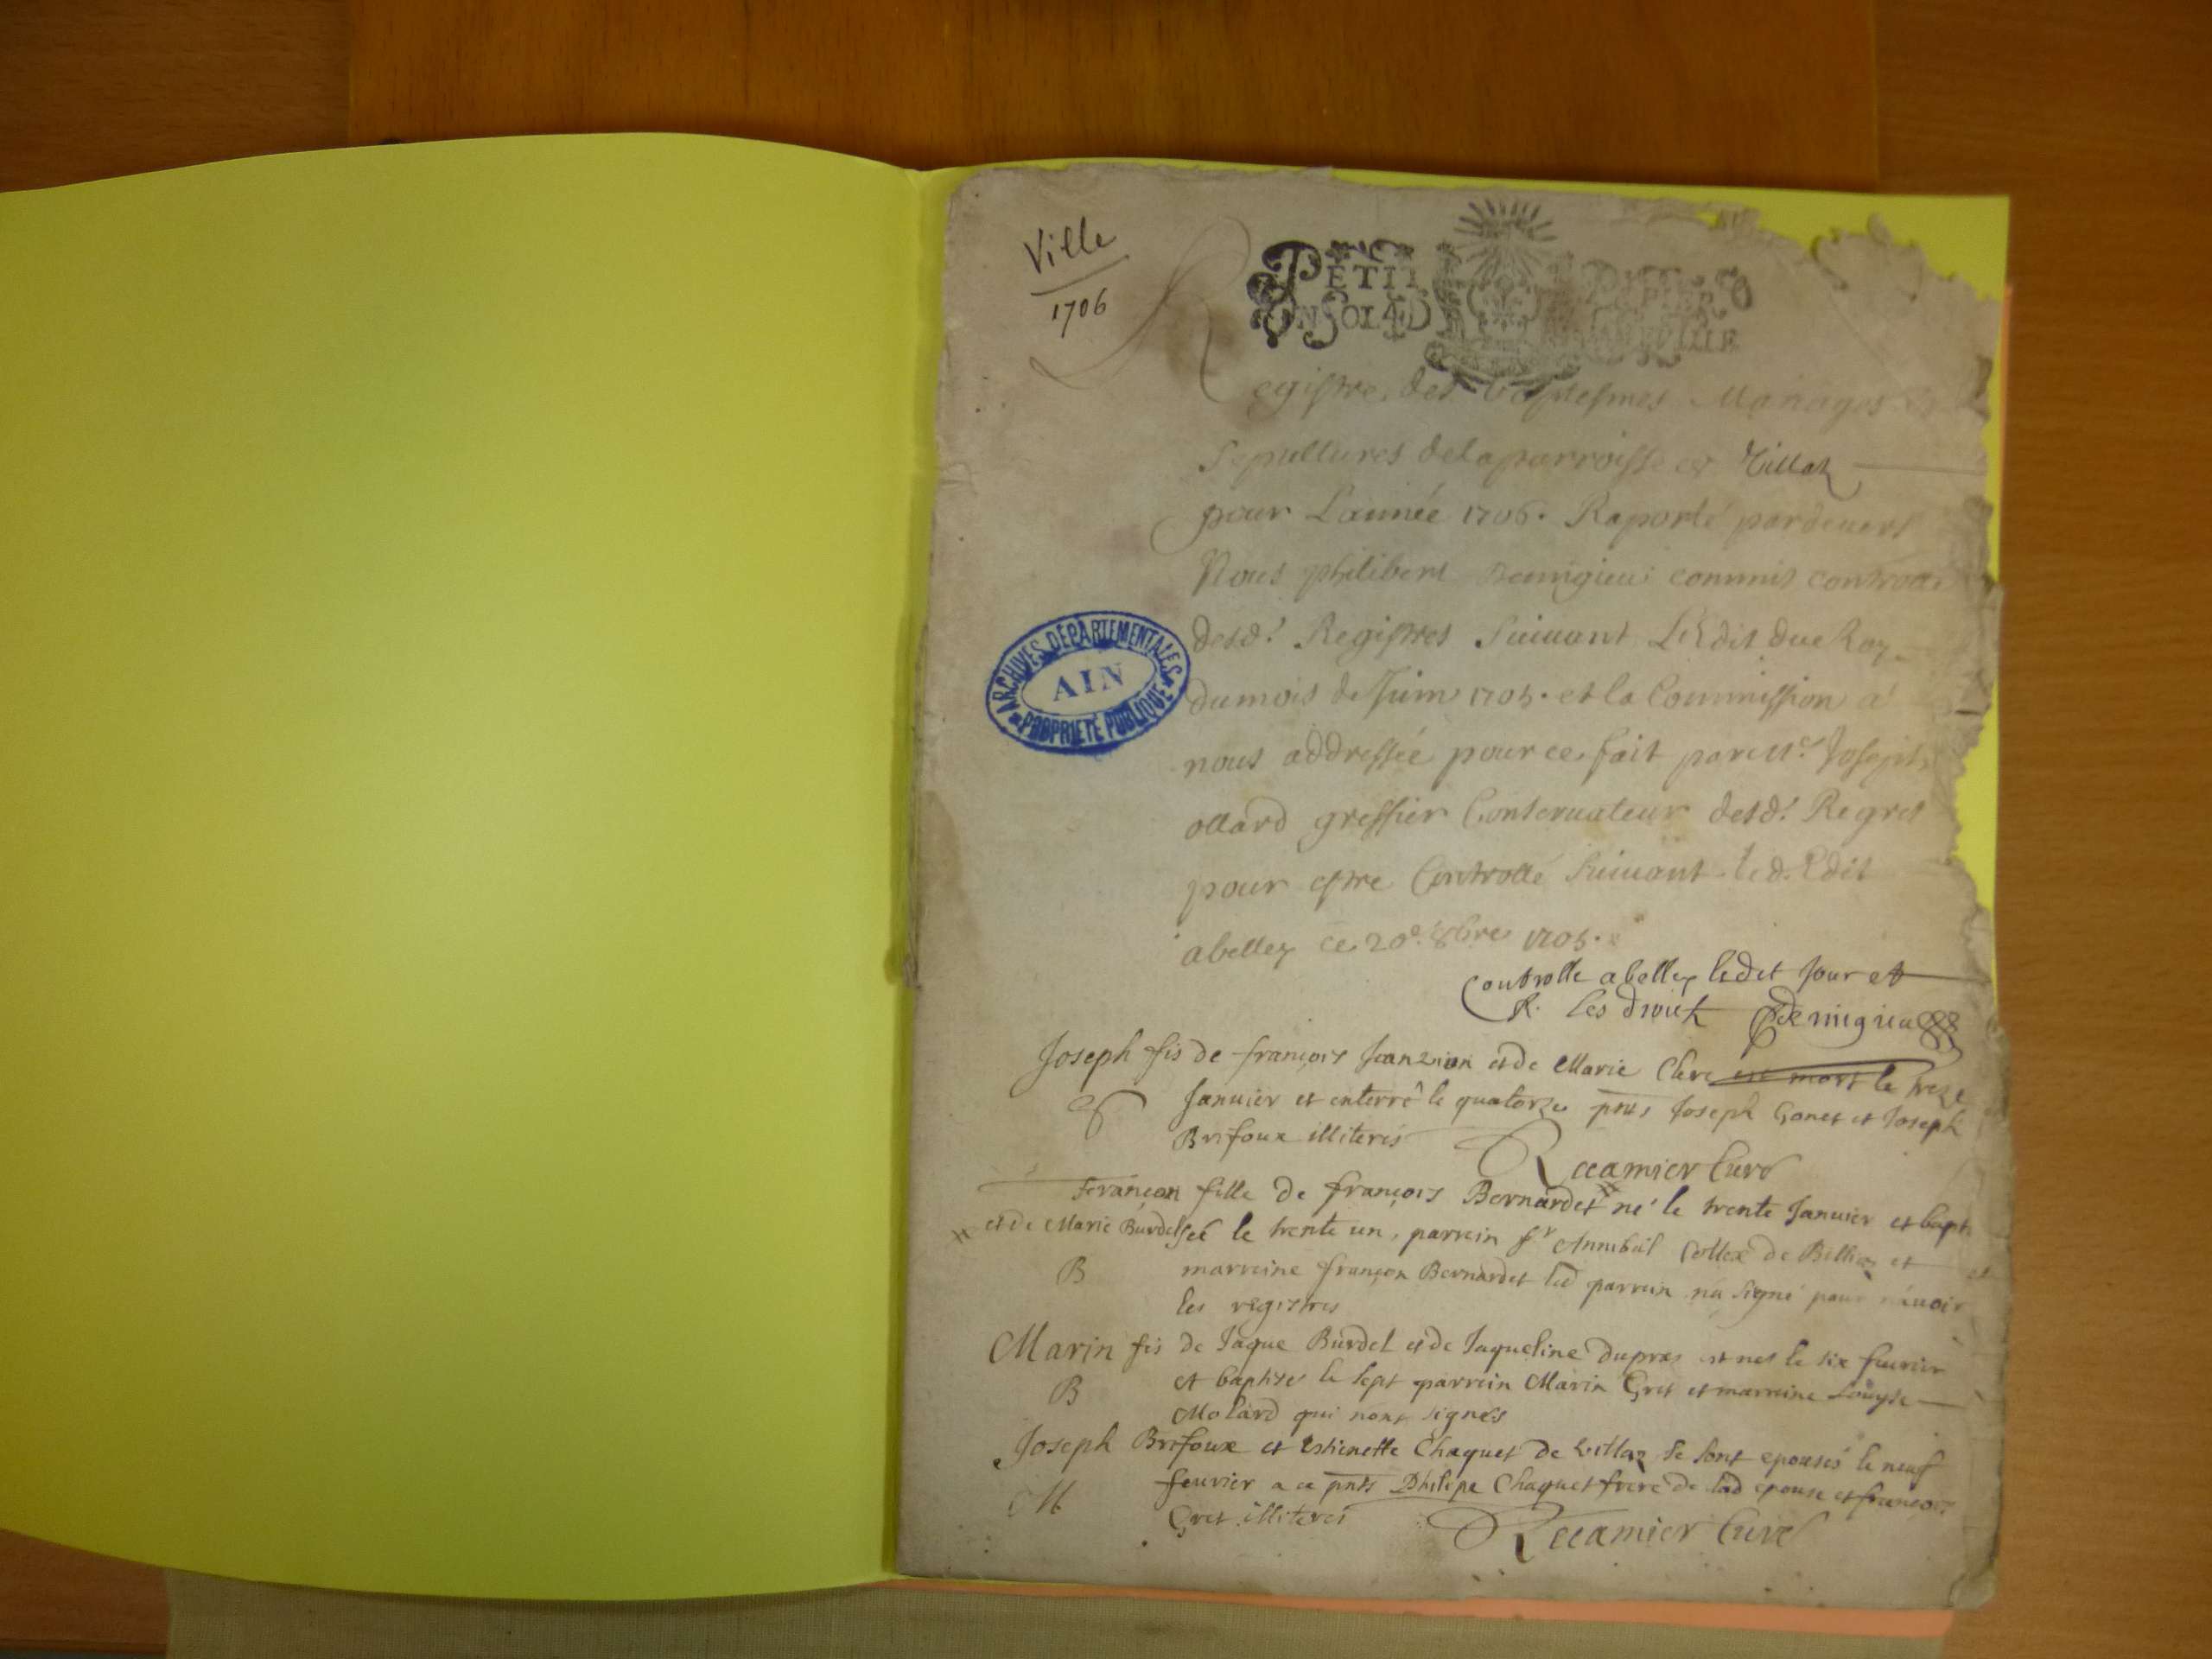 Ville
1706
PETIT PAPIER
UN SOL 4 D
Registre des baptesmes Mariages
Sepultures de la parroisse de Villaz
pour L'année 1706. Raporté pardeuers
Nous philibert Demigieu commis
desd. Registres Suiuant L'Edit due Roy
du mois de Juin 1705. et la Commission a
nous addressée pour ce fait par Me. Joseph
ollard greffier Conseruateur desd. Regres
pour estre Controllé Suiuant led. Edit
abelley ce 20e. 8bre 1705.
Controlle abelley ledit Jour et
R. les droicts Demigieu
ARCHIVES DÉPARTEMENTALES
AIN
PROPRIÉTÉ PUBLIQUE
Joseph fis de françois Janzion et de Marie Clerc est mort le treze
S Januier et enterré le quatorze pnts Joseph Gonet et Joseph
Brifoux illiterés
Recamier Curé
françon fille de françois Bernardet # né le trente Januier et bapti
# et de Marie Burdet sée le trente un, parrein sr Annibal Collex de Billiaz et
B marreine françon Bernardet led parrein n'a signé pour n'auoir
les registres
Marin fis de Jaque Burdet et de Jaqueline dupraz est nes le six feurier
B et baptizé le sept parrein Marin Gret et marreine Louyse
Molard qui nont signés
Joseph Brifoux et Estienette Chaquet de Villaz se sont epousés le neuf
M feurier a ce pnts Philipe Chaquet frere de lad epouse et francois
Gret illiterés Recamier Curé